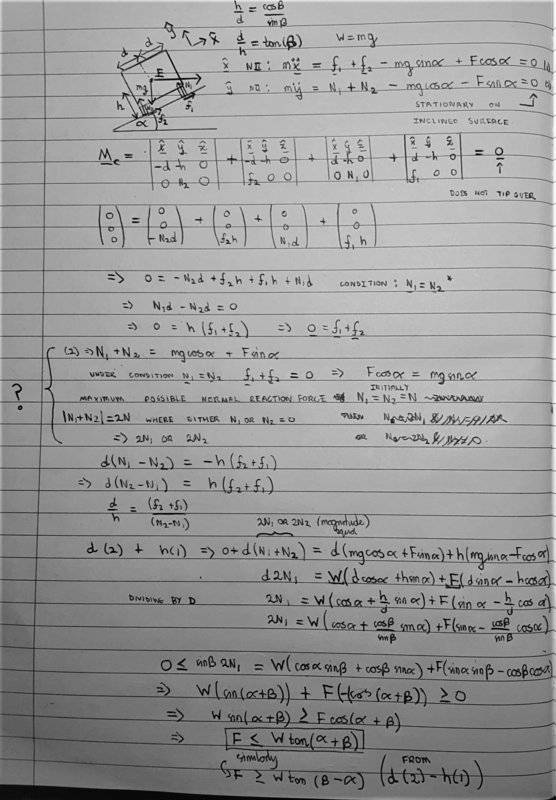 h/d = cosβ/sinβ
d/h = tan(β) W = mg
d d
ŷ x̂
F
mg
h
N₁
N₂
f₁
f₂
α
x̂ NII: mẍ = f₁ + f₂ - mgsinα + Fcosα = 0
ŷ NII: mÿ = N₁ + N₂ - mgcosα - Fsinα = 0
STATIONARY ON
INCLINED SURFACE
M_c = |x̂ ŷ ẑ; -d -h 0; 0 N₂ 0| + |x̂ ŷ ẑ; -d -h 0; f₂ 0 0| + |x̂ ŷ ẑ; d -h 0; 0 N₁ 0| + |x̂ ŷ ẑ; d -h 0; f₁ 0 0| = 0
DOES NOT TIP OVER
(0; 0; 0) = (0; 0; -N₂d) + (0; 0; f₂h) + (0; 0; N₁d) + (0; 0; f₁h)
=> 0 = -N₂d + f₂h + f₁h + N₁d CONDITION: N₁ = N₂ *
=> N₁d - N₂d = 0
=> 0 = h(f₁+f₂) => 0 = f₁+f₂
?
(2) => N₁ + N₂ = mgcosα + Fsinα
UNDER CONDITION N₁ = N₂ f₁ + f₂ = 0 => Fcosα = mgsinα
MAXIMUM POSSIBLE NORMAL REACTION FORCE INITIALLY N₁ = N₂ = N
|N₁+N₂| = 2N WHERE EITHER N₁ OR N₂ = 0
=> 2N₁ OR 2N₂ OR
d(N₁ - N₂) = -h(f₂+f₁)
=> d(N₂-N₁) = h(f₂+f₁)
d/h = (f₂+f₁)/(N₂-N₁)
2N₁ OR 2N₂ (magnitude)
d(2) + h(1) => 0 + d(N₁+N₂) = d(mgcosα+Fsinα) + h(mgsinα-Fcosα)
d2N₁ = W(dcosα + hsinα) + F(dsinα - hcosα)
DIVIDING BY D 2N₁ = W(cosα + h/d sinα) + F(sinα - h/d cosα)
2N₁ = W(cosα + cosβ/sinβ sinα) + F(sinα - cosβ/sinβ cosα)
0 ≤ sinβ 2N₁ = W(cosαsinβ + cosβsinα) + F(sinαsinβ - cosβcosα)
=> W(sin(α+β)) + F(-cos(α+β)) ≥ 0
=> Wsin(α+β) ≥ Fcos(α+β)
=> F ≤ Wtan(α+β)
similarly
F ≥ Wtan(β-α) (FROM d(2) - h(1))